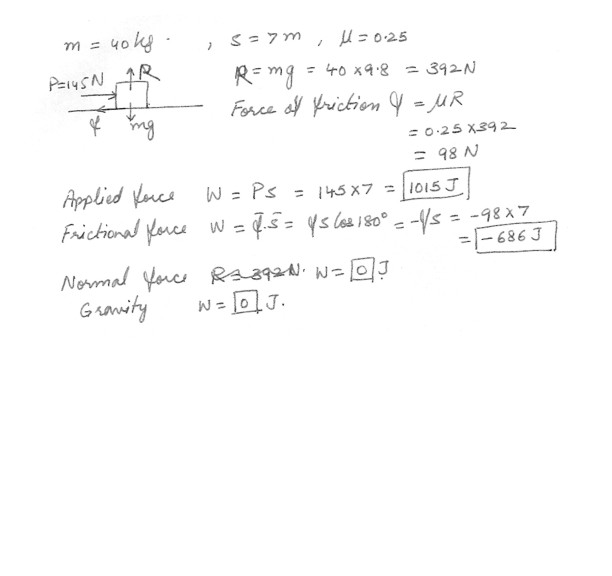 m = 40 kg . , s = 7 m , μ = 0.25
P=145N R R = mg = 40 x 9.8 = 392N
f mg Force of friction f = μR
= 0.25 X 392
= 98 N
Applied force W = Ps = 145 x 7 = 1015 J
Frictional force W = f̄.s̄ = fs cos 180° = -fs = -98 x 7
= -686 J
Normal force R = 392N. W = 0 J
Gravity W = 0 J.